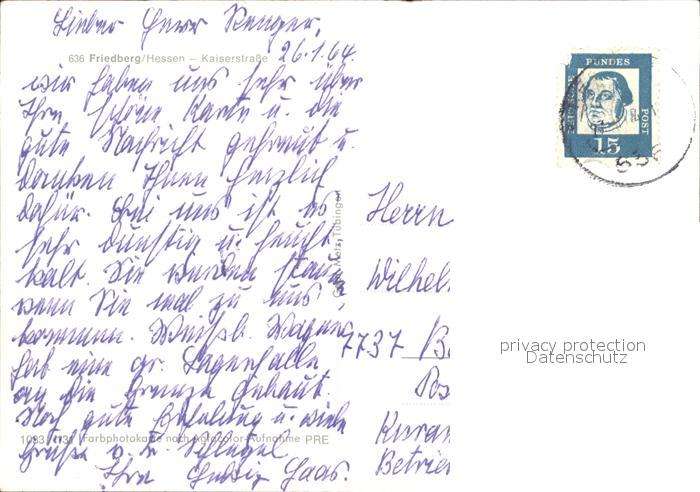 Lieber Herr Renger,
636 Friedberg/Hessen — Kaiserstraße
26.1.64.
wir haben uns sehr über
Ihre schöne Karte u. die
gute Nachricht gefreut u.
danken Ihnen herzlich
dafür. Bei uns ist es
sehr dunstig u. feucht
kalt. Sie werden staunen,
wenn Sie mal zu uns
kommen. Weißb. Wagner
hat eine gr. Lagerhalle
an die Grenze gebaut.
Noch gute Erholung u. viele
1093/ 131 Farbphotokarte nach Agfacolor-Aufnahme PRE
Grüße v. u. Schlägel
Ihre Haas.
Metz, Tübingen
Herrn
Wilhel
7737 B
Pos
Kuran
Betrie
DEUTSCHE BUNDES POST
15
636
privacy protection
Datenschutz